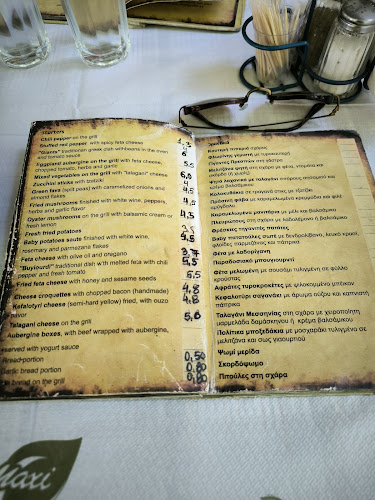 Starters
Chili pepper on the grill
Stuffed red pepper with spicy feta cheese
"Giants" traditional greek dish with beans in the oven
and tomato sauce
Eggplant aubergine on the grill with feta cheese, 5,5
chopped tomato, herbs and garlic
Mixed vegetables on the grill with "talagani" cheese 6,0
Zucchini sticks with 4
Green fava (split peas) with caramelized onions and 4,5
almond flakes
Fried mushrooms finished with white wine, peppers, 4,5
herbs and garlic flavor
Oyster mushrooms on the grill with balsamic cream or 4,5
fresh lemon
Fried potatoes
Baby potatoes saute finished with white wine, 4,5
rosemary and parmazana flakes
Feta cheese with olive oil and oregano
"Buyiordi" traditional dish with melted feta with chili 4,5
pepper and fresh tomato
Fried feta cheese with honey and sesame seeds 5,5
Cheese croquettes with chopped bacon (handmade) 4,8
Kefalotyri cheese (semi-hard yellow) fried, with ouzo 4,8
flavor
Talagani cheese on the grill 5,8
Aubergine boxes, with beef wrapped with aubergine,
served with yogurt sauce
Bread-portion 0,50
Garlic bread portion 0,80
bread on the grill 0,80
Ορεκτικά
Καυτερή πιπεριά σχάρας
Φλωρίνης γεμιστή με τυροκαυτερή
Γίγαντες Πρεσπών στο φούρνο
Μελιτζάνα ψητή στη σχάρα με φέτα, ντομάτα και
Ψητά λαχανικά με ταλαγάνι σχάρας και κρέμα
βαλσάμικου
Κολοκυθάκια σε τραγανά στικς με
Πράσινη φάβα με καραμελωμένα κρεμμύδια και φιλέ
αμυγδάλου
Καραμελωμένα μανιτάρια με μέλι και βαλσάμικο
Πλευρώτους στη σχάρα με λαδολέμονο ή βαλσάμικο
Φρέσκιες τηγανητές πατάτες
Baby πατατούλες σωτέ με δενδρολίβανο, λευκό κρασί,
φλούδες παρμεζάνας και πάπρικα
Φέτα με λαδορίγανη
Παραδοσιακό μπουγιουρντί
Φέτα μελωμένη με σουσάμι τυλιγμένη σε φύλλο
κρούστας
Αφράτες τυροκροκέτες με ψιλοκομμένο μπέικον
Κεφαλοτύρι σαγανάκι με άρωμα ούζου και καπνιστή
πάπρικα
Ταλαγάνι Μεσσηνίας στη σχάρα με χειροποίητη
μαρμελάδα δαμάσκηνου ή κρέμα βαλσάμικου
Πολίτικα μποξαδάκια με μοσχαράκι τυλιγμένο σε
μελιτζάνα και σως γιαουρτιού
Ψωμί μερίδα
Σκορδόψωμο
Πιτούλες στη σχάρα
Maxi